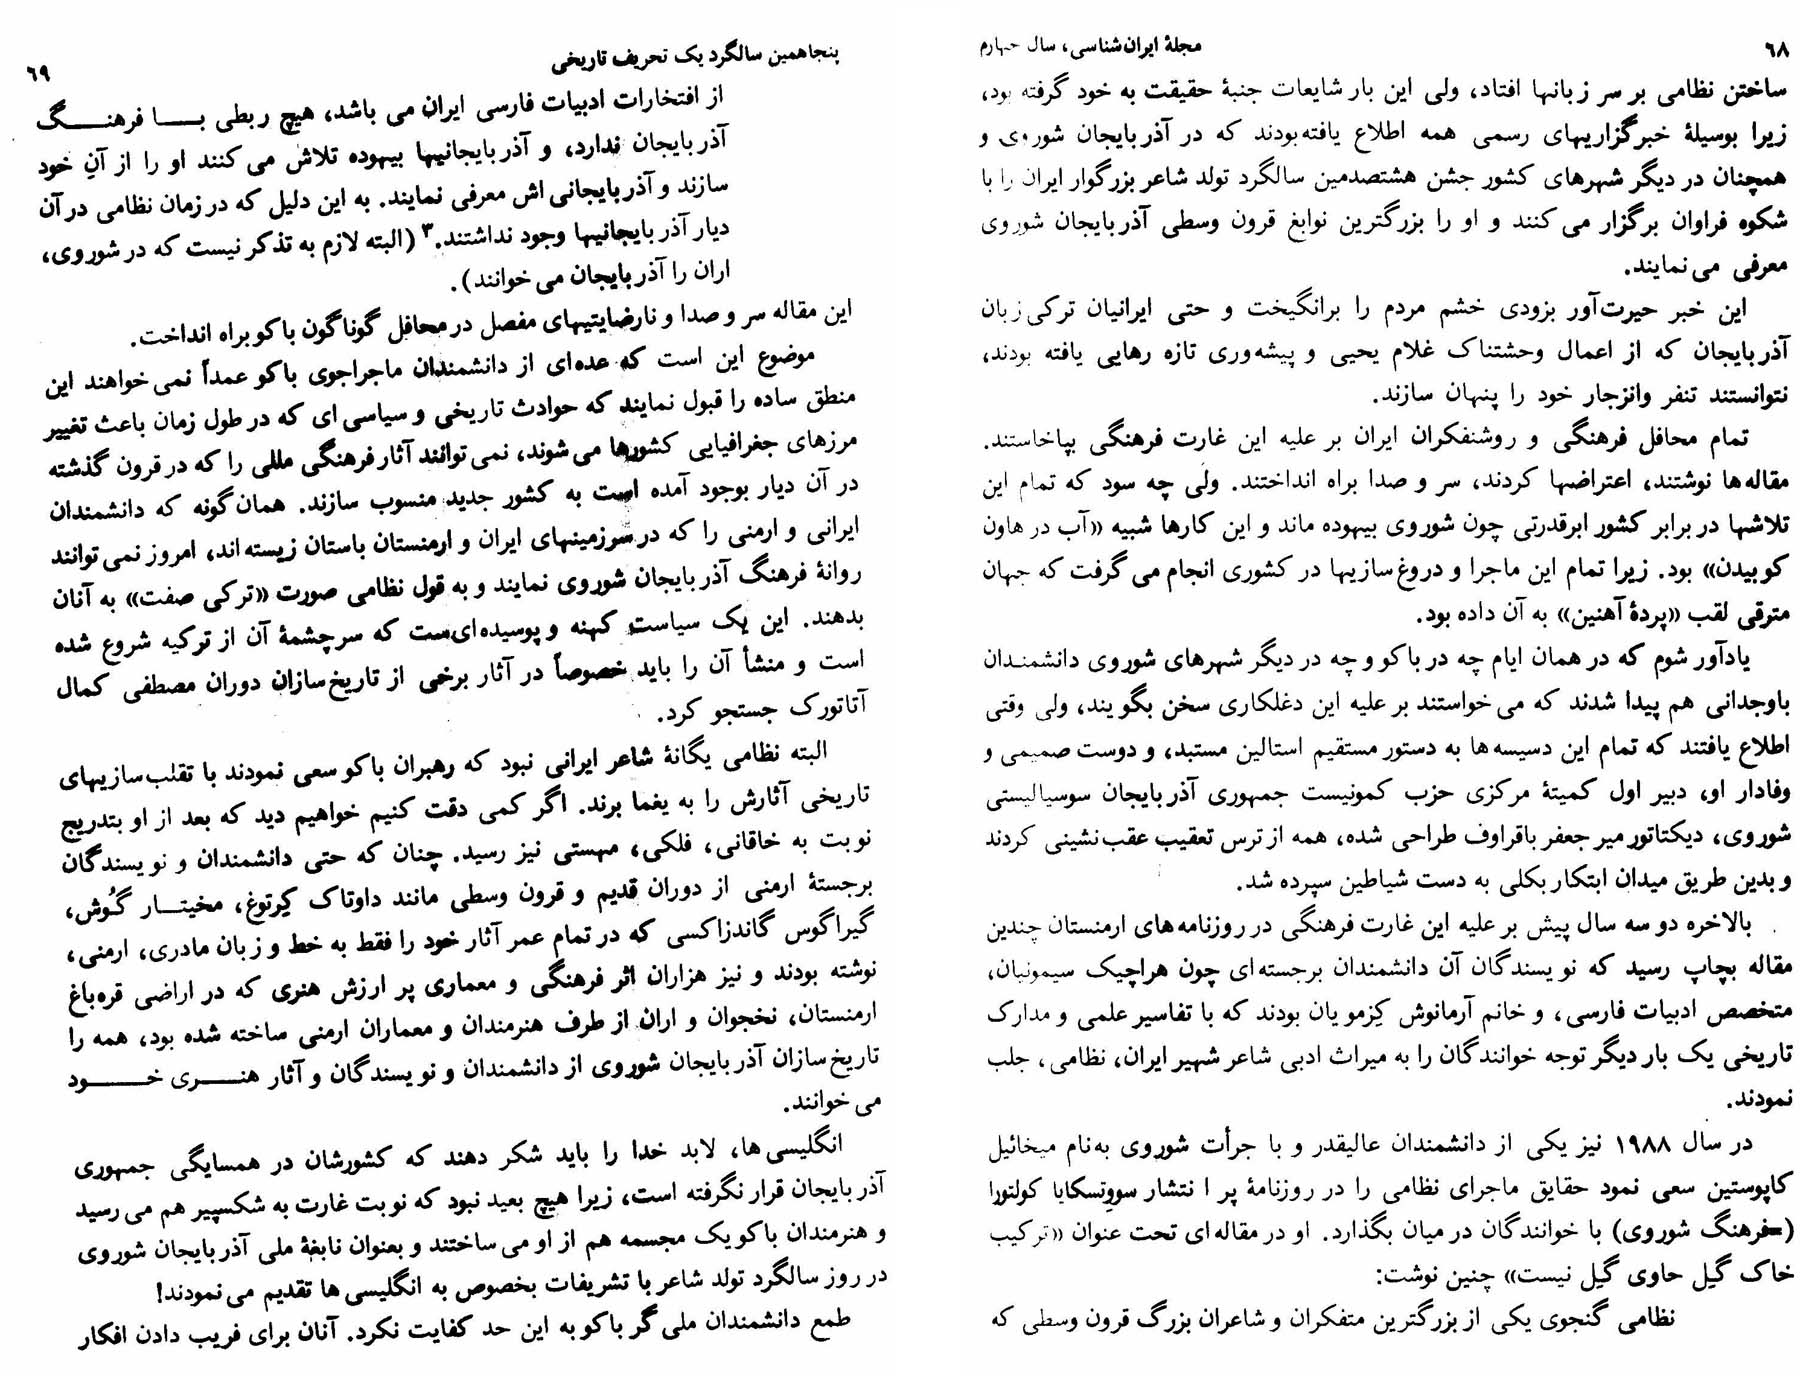 ۶۸
مجلهٔ ایران‌شناسی، سال چهارم
ساختن نظامی بر سر زبانها افتاد، ولی این بار شایعات جنبهٔ حقیقت به خود گرفته بود،
زیرا بوسیلهٔ خبرگزاریهای رسمی همه اطلاع یافته‌بودند که در آذربایجان شوروی و
همچنان در دیگر شهرهای کشور جشن هشتصدمین سالگرد تولد شاعر بزرگوار ایران را با
شکوه فراوان برگزار می‌کنند و او را بزرگترین نوابغ قرون وسطی آذربایجان شوروی
معرفی می‌نمایند.
این خبر حیرت‌آور بزودی خشم مردم را برانگیخت و حتی ایرانیان ترکی‌زبان
آذربایجان که از اعمال وحشتناک غلام یحیی و پیشه‌وری تازه رهایی یافته بودند،
نتوانستند تنفر وانزجار خود را پنهان سازند.
تمام محافل فرهنگی و روشنفکران ایران بر علیه این غارت فرهنگی بپاخاستند.
مقاله‌ها نوشتند، اعتراضها کردند، سر و صدا براه انداختند. ولی چه سود که تمام این
تلاشها در برابر کشور ابرقدرتی چون شوروی بیهوده ماند و این کارها شبیه «آب در هاون
کوبیدن» بود. زیرا تمام این ماجرا و دروغ‌سازیها در کشوری انجام می‌گرفت که جهان
مترقی لقب «پردهٔ آهنین» به آن داده بود.
یادآور شوم که در همان ایام چه در باکو و چه در دیگر شهرهای شوروی دانشمندان
باوجدانی هم پیدا شدند که می‌خواستند بر علیه این دغلکاری سخن بگویند، ولی وقتی
اطلاع یافتند که تمام این دسیسه‌ها به دستور مستقیم استالین مستبد، و دوست صمیمی و
وفادار او، دبیر اول کمیتهٔ مرکزی حزب کمونیست جمهوری آذربایجان سوسیالیستی
شوروی، دیکتاتور میر جعفر باقراوف طراحی شده، همه از ترس تعقیب عقب‌نشینی کردند
و بدین طریق میدان ابتکار بکلی به دست شیاطین سپرده شد.
بالاخره دو سه سال پیش بر علیه این غارت فرهنگی در روزنامه‌های ارمنستان چندین
مقاله بچاپ رسید که نویسندگان آن دانشمندان برجسته‌ای چون هراچیک سیمونیان،
متخصص ادبیات فارسی، و خانم آرمانوش کِزمویان بودند که با تفاسیر علمی و مدارک
تاریخی یک بار دیگر توجه خوانندگان را به میراث ادبی شاعر شهیر ایران، نظامی، جلب
نمودند.
در سال ۱۹۸۸ نیز یکی از دانشمندان عالیقدر و با جرأت شوروی به‌نام میخائیل
کاپوستین سعی نمود حقایق ماجرای نظامی را در روزنامهٔ پر ا نتشار سووِتسکایا کولتورا
(=فرهنگ شوروی) با خوانندگان در میان بگذارد. او در مقاله‌ای تحت عنوان «ترکیب
خاک گیل حاوی گیل نیست» چنین نوشت:
نظامی گنجوی یکی از بزرگترین متفکران و شاعران بزرگ قرون وسطی که
پنجاهمین سالگرد یک تحریف تاریخی
۶۹
از افتخارات ادبیات فارسی ایران می باشد، هیچ ربطی بـــا فرهنـــگ
آذربایجان ندارد، و آذربایجانیها بیهوده تلاش می‌کنند او را از آنِ خود
سازند و آذربایجانی اش معرفی نمایند. به این دلیل که در زمان نظامی در آن
دیار آذربایجانیها وجود نداشتند.۳ (البته لازم به تذکر نیست که در شوروی،
اران را آذربایجان می خوانند).
این مقاله سر و صدا و نارضایتیهای مفصل در محافل گوناگون باکو براه انداخت.
موضوع این است که عده‌ای از دانشمندان ماجراجوی باکو عمداً نمی‌خواهند این
منطق ساده را قبول نمایند که حوادث تاریخی و سیاسی ای که در طول زمان باعث تغییر
مرزهای جغرافیایی کشورها می‌شوند، نمی‌توانند آثار فرهنگی مللی را که در قرون گذشته
در آن دیار بوجود آمده است به کشور جدید منسوب سازند. همان‌گونه که دانشمندان
ایرانی و ارمنی را که در سرزمینهای ایران و ارمنستان باستان زیسته اند، امروز نمی‌توانند
روانهٔ فرهنگ آذربایجان شوروی نمایند و به قول نظامی صورت «ترکی صفت» به آنان
بدهند. این یک سیاست کهنه و پوسیده‌ای‌ست که سرچشمهٔ آن از ترکیه شروع شده
است و منشأ آن را باید خصوصاً در آثار برخی از تاریخ‌سازان دوران مصطفی کمال
آتاتورک جستجو کرد.
البته نظامی یگانهٔ شاعر ایرانی نبود که رهبران باکو سعی نمودند با تقلب‌سازیهای
تاریخی آثارش را به یغما برند. اگر کمی دقت کنیم خواهیم دید که بعد از او بتدریج
نوبت به خاقانی، فلکی، مهستی نیز رسید. چنان که حتی دانشمندان و نویسندگان
برجستهٔ ارمنی از دوران قدیم و قرون وسطی مانند داوتاک کِرتوغ، مخیتـار گُوش،
گیراگوس گاندزاکسی که در تمام عمر آثار خود را فقط به خط و زبان مادری، ارمنی،
نوشته بودند و نیز هزاران اثر فرهنگی و معماری پر ارزش هنری که در اراضی قره‌باغ
ارمنستان، نخجوان و اران از طرف هنرمندان و معماران ارمنی ساخته شده بود، همه را
تاریخ‌سازان آذربایجان شوروی از دانشمندان و نویسندگان و آثار هنـــری خـــود
می خوانند.
انگلیسی‌ها، لابد خدا را باید شکر دهند که کشورشان در همسایگی جمهوری
آذربایجان قرار نگرفته است، زیرا هیچ بعید نبود که نوبت غارت به شکسپیر هم می‌رسید
و هنرمندان باکو یک مجسمه هم از او می‌ساختند و بعنوان نابغهٔ ملی آذربایجان شوروی
در روز سالگرد تولد شاعر با تشریفات بخصوص به انگلیسی ها تقدیم می‌نمودند!
طمع دانشمندان ملی‌گر باکو به این حد کفایت نکرد. آنان برای فریب دادن افکار